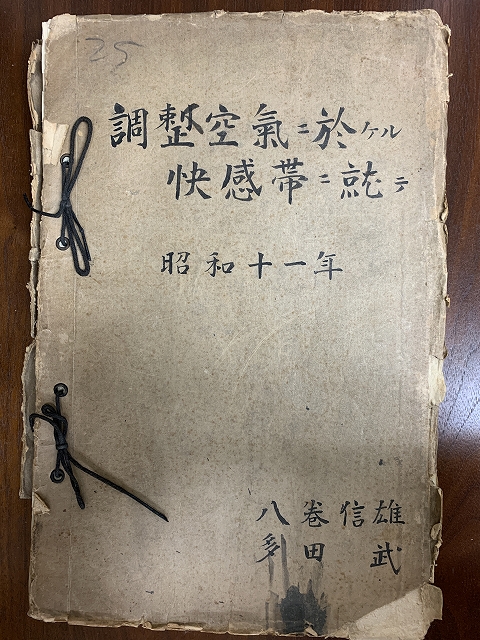 25
調整空氣ニ於ケル
快感帯ニ就テ
昭和十一年
八巻信雄
多田 武